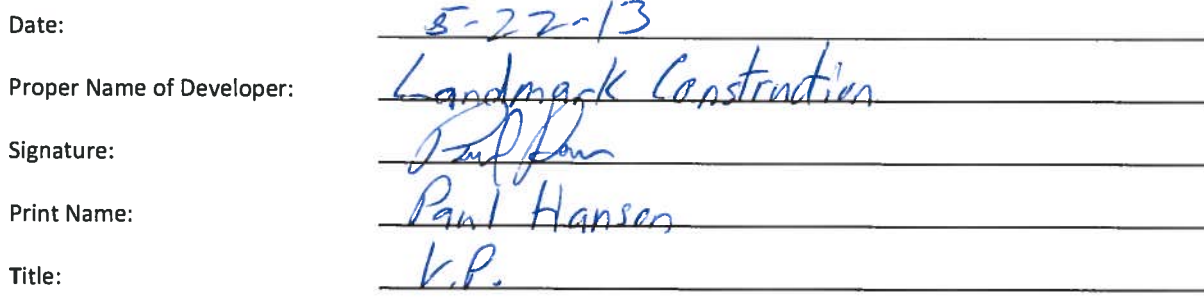 Date: 5-22-13
Proper Name of Developer: Landmark Construction
Signature:
Print Name: Paul Hansen
Title: V.P.